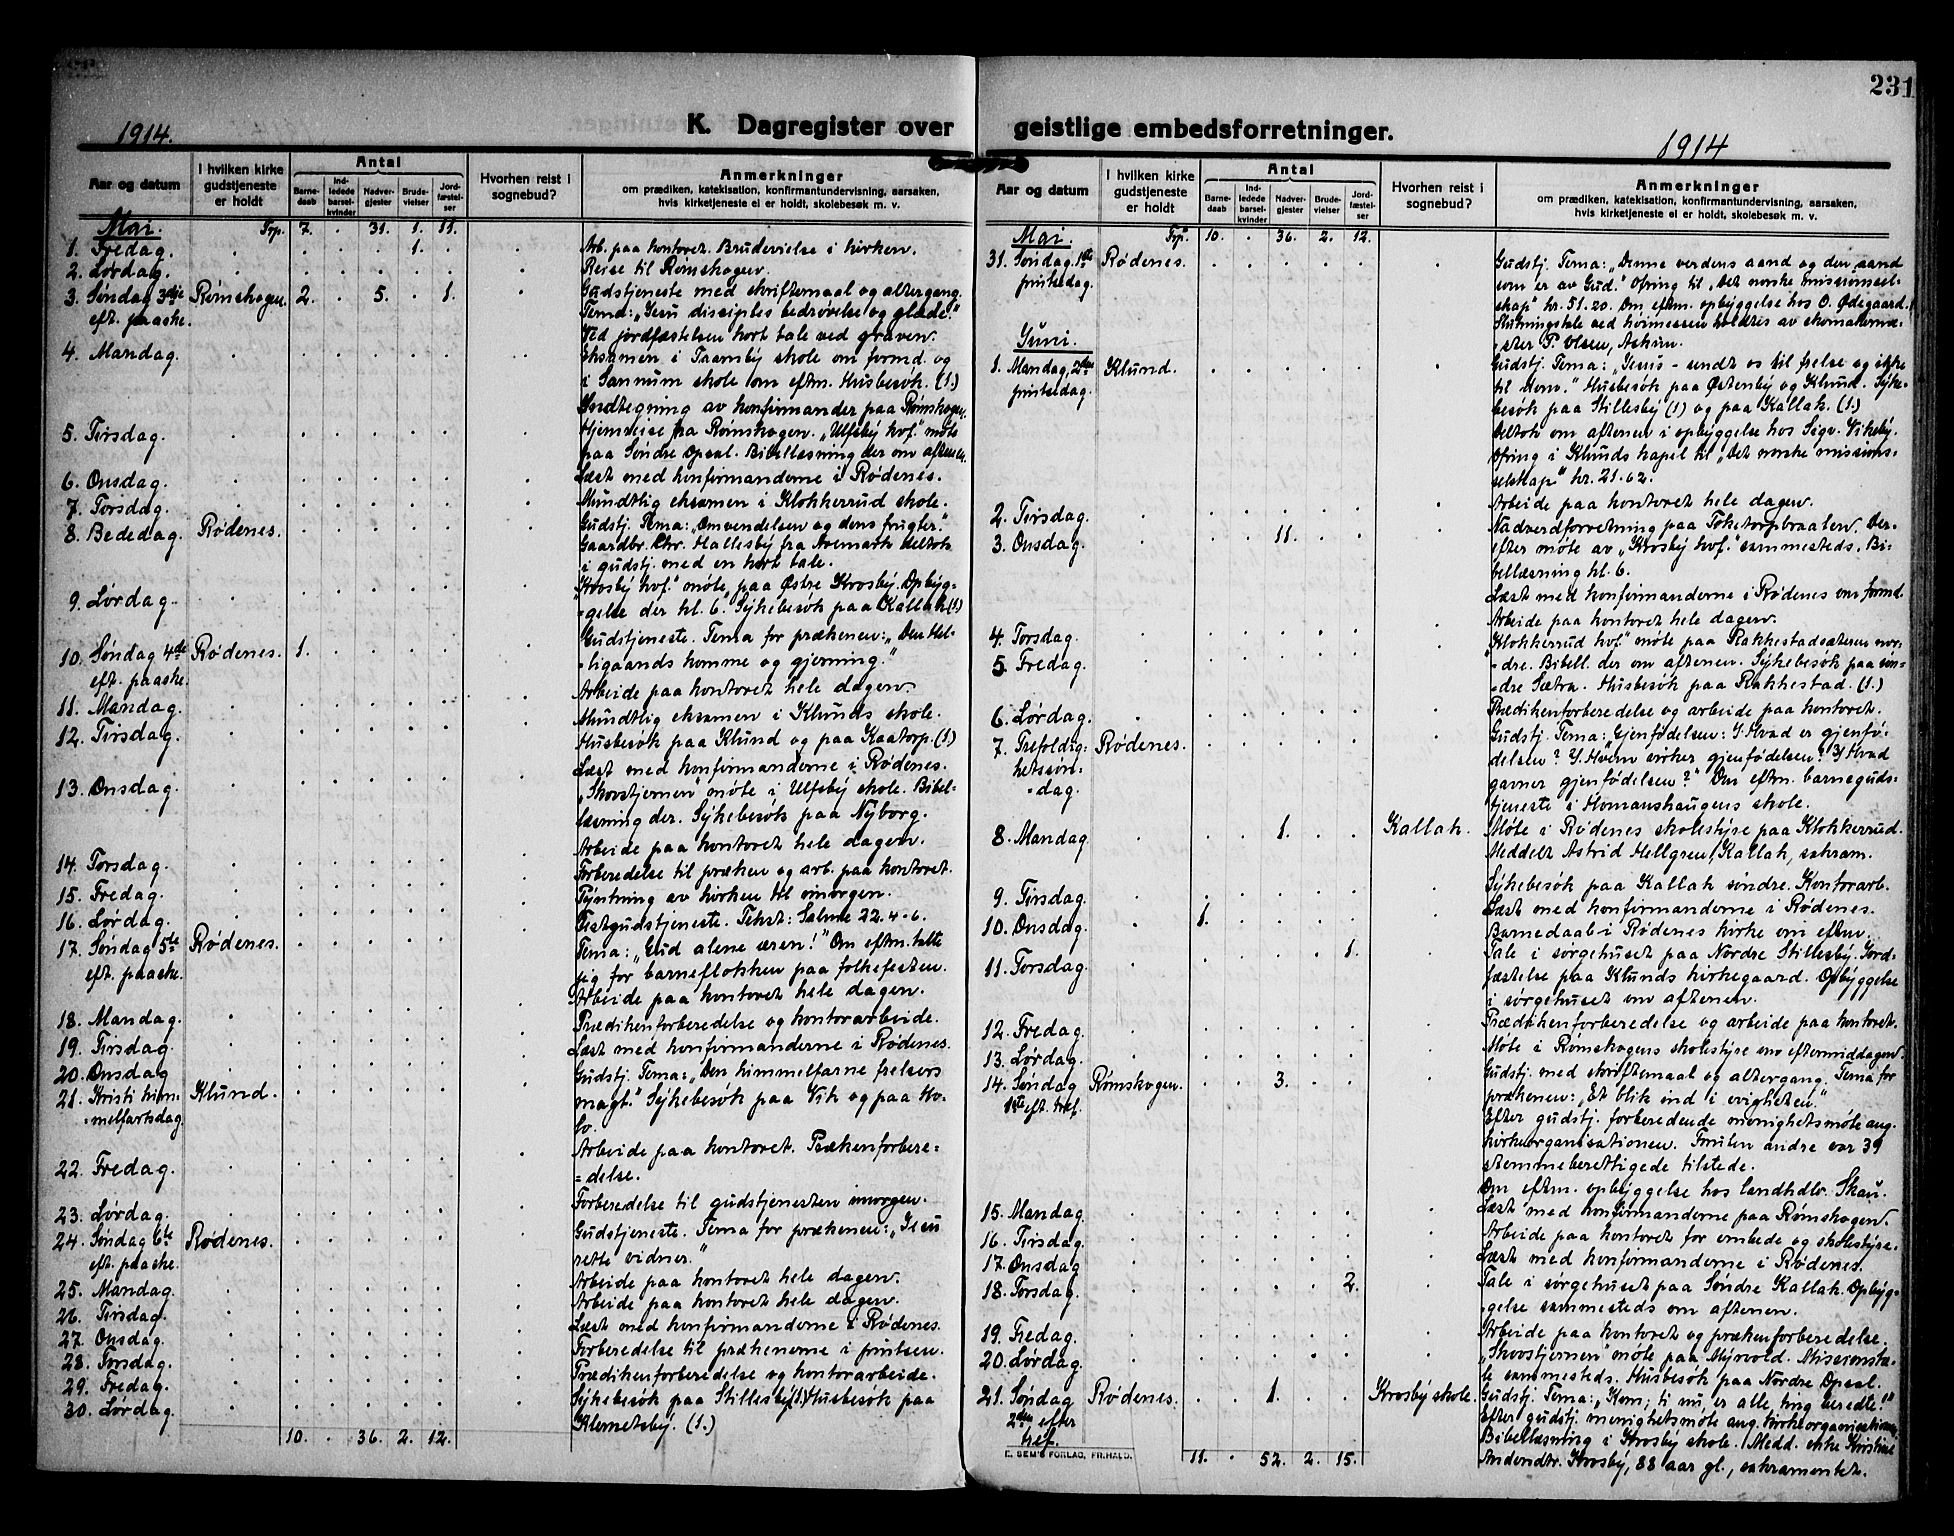 231
1914.
K. Dagregister over geistlige embedsforretninger.
1914
Aar og datum
I hvilken kirke gudstjeneste er holdt
Antal
Barne-daab
Ind-ledede barsel-kvinder
Nadver-gjester
Brude-vielser
Jord-fæstel-ser
Hvorhen reist i sognebud?
Anmerkninger
om prædiken, katekisation, konfirmantundervisning, aarsaken,
hvis kirketjeneste ei er holdt, skolebesøk m. v.
Mai. Trp. 7. . 31. 1. 11.
1. Fredag. 1. Arb. paa kontoret. Brudevielse i kirken.
2. Lørdag. Reise til Rømskogen.
3. Søndag 3dje Rømskogen. 2. . 5. . 1. Gudstjeneste med skriftemaal og altergang.
eft. paaske. Tema: „Jesu disciples bedrøvelse og glæde."
Ved jordfæstelsen kort tale ved graven.
4. Mandag. Eksamen i Tramby skole om formd. og
i Sannum skole om eftm. Husbesøk. (1.)
Indtegning av konfirmander paa Rømskogen.
5. Tirsdag. Hjemreise fra Rømskogen. „Ulfsby kvf." møte
paa Søndre Opsal. Bibellæsning der om aftenen.
6. Onsdag. Læst med konfirmanderne i Rødenes.
7. Torsdag. Mundtlig eksamen i Klokkerrud skole.
8. Bededag. Rødenes. Gudstj. Tema: „Omvendelsen og dens frugter."
Gaardbr. Chr. Hallesby fra Aremark deltok
i gudstj. med en kort tale.
9. Lørdag. „Krosby kvf." møte paa Østre Krosby. Opbyg-
-gelse der kl. 6. Sykebesøk paa Kallak (1)
10. Søndag 4de Rødenes. 1. Gudstjeneste. Tema for prækenen: „Den Hel-
eft. paaske. -ligaands komme og gjerning."
11. Mandag. Arbeide paa kontoret hele dagen.
12. Tirsdag. Mundtlig eksamen i Klunds skole.
Husbesøk paa Klund og paa Kaatorp. (1)
13. Onsdag. Læst med konfirmanderne i Rødenes.
„Skovstjernen" møte i Ulfsby skole. Bibel-
læsning der. Sykebesøk paa Nyborg.
14. Torsdag. Arbeide paa kontoret hele dagen.
15. Fredag. Forberedelse til præken og arb. paa kontoret.
16. Lørdag. Pyntning av kirken til imorgen.
17. Søndag 5te Rødenes. Festgudstjeneste. Tekst: Salme 22. 4-6.
eft. paaske. Tema: „Gud alene æren!" Om eftm. talte
jeg for barneflokken paa folkefesten.
18. Mandag. Arbeide paa kontoret hele dagen.
19. Tirsdag. Prædikenforberedelse og kontorarbeide.
20. Onsdag Læst med konfirmanderne i Rødenes.
21. Kristi him- Klund. Gudstj. Tema: „Den himmelfarne frelsers
=melfartsdag. magt." Sykebesøk paa Vik og paa Ho-
lv.
22. Fredag. Arbeide paa kontoret. Prækenforbere=
=delse.
23. Lørdag. Forberedelse til gudstjenesten imorgen.
24. Søndag 6te Rødenes. Gudstjeneste. Tema for prækenen: „Jesu
eft. paaske. rette vidner."
25. Mandag. Arbeide paa kontoret hele dagen.
26. Tirsdag. Arbeide paa kontoret hele dagen.
27. Onsdag. Læst med konfirmanderne i Rødenes.
28. Torsdag. Forberedelse til prækenerne i pintsen.
29. Fredag. Prædikenforberedelse og kontorarbeide.
30. Lørdag. Sykebesøk paa Stillesby (1) Husbesøk paa
Klemetsby. (1.)
10. . 36. 2. 12.
Aar og datum
I hvilken kirke gudstjeneste er holdt
Antal
Barne-daab
Ind-ledede barsel-kvinder
Nadver-gjester
Brude-vielser
Jord-fæstel-ser
Hvorhen reist i sognebud?
Anmerkninger
om prædiken, katekisation, konfirmantundervisning, aarsaken,
hvis kirketjeneste ei er holdt, skolebesøk m. v.
Mai. Trp. 10. . 36. 2. 12.
31. Søndag. 1ste Rødenes. Gudstj. Tema: „Denne verdens aand og den aand
pintsedag. som er av Gud." Ofring til „Det norske missionssel-
skap" kr. 51.20. Om eftm. opbyggelse hos O. Ødegaard.
Slutningstale ved høimessen holdtes av skomakerme-
ster P. Olsen, Askim.
Juni.
1. Mandag, 2den Klund. Gudstj. Tema: „Jesus - sendt os til frelse og ikke
pintsedag. til dom." Husbesøk paa Østenby og Klund. Syke-
besøk paa Stillesby (1) og paa Kallak. (1.)
Deltok om aftenen i opbyggelse hos Sigv. Vikeby.
Ofring i Klunds kapel til „Det norske missions-
selskap" kr. 21.62.
2. Tirsdag. Arbeide paa kontoret hele dagen.
3. Onsdag. 11. Nadverdforretning paa Toketorpbraaten. Der-
efter møte av „Krosby kvf." sammesteds. Bi-
bellæsning kl. 6.
Læst med konfirmanderne i Rødenes om formd.
4. Torsdag. Arbeide paa kontoret hele dagen.
5. Fredag. „Klokkerrud kvf" møte paa Rakkestadsæteren nor-
-dre. Bibell. der om aftenen. Sykebesøk paa søn-
-dre Sætra. Husbesøk paa Rakkestad. (1.)
6. Lørdag. Prædikenforberedelse og arbeide paa kontoret.
7. Trefoldig- Rødenes. Gudstj. Tema: „Gjenfødelsen: 1/ Hvad er gjenfø-
hetssøn- delsen? 2/ Hvem virker gjenfødelsen? 3/ Hvad
-dag. gavner gjenfødelsen?" Om eftm. barneguds-
tjeneste i Homanshaugens skole.
8. Mandag 1. Kallak. Møte i Rødenes skolestyre paa Klokkerrud.
Meddelt Astrid Hellgren, Kallak, sakram.
9. Tirsdag. Sykebesøk paa Kallak søndre. Kontorarb.
10. Onsdag. 1. Læst med konfirmanderne i Rødenes.
Barnedaab i Rødenes kirke om eftm.
11. Torsdag. 1. Tale i sørgehuset paa Nordre Stillesby. Jord-
fæstelse paa Klunds kirkegaard. Opbyggelse
i sørgehuset om aftenen.
12. Fredag. Prædikenforberedelse og arbeide paa kontoret.
13. Lørdag. Møte i Rømskogens skolestyre om eftermiddagen.
14. Søndag Rømskogen. 3. Gudstj. med skriftemaal og altergang. Tema for
1ste eft. tref. prækenen: „Et blik ind i evigheten."
Efter gudstj. forberedende menighetsmøte ang.
kirkeorganisationen. Foruten andre var 39
stemmeberettigede tilstede.
Om eftm. opbyggelse hos landhdlr. Skau.
15. Mandag. Læst med konfirmanderne paa Rømskogen.
16. Tirsdag. Arbeide paa kontoret for embede og skolestyre.
17. Onsdag Læst med konfirmanderne i Rødenes.
18. Torsdag. 2. Tale i sørgehuset paa Søndre Kallak. Opbyg-
-gelse sammesteds om aftenen.
19. Fredag. Arbeide paa kontoret og prækenforberedelse.
20. Lørdag. „Skovstjernen" møte paa Myrvold. Missionsta-
le sammesteds. Husbesøk paa Nordre Opsal.
21. Søndag Rødenes. 1. Krosby skole. Gudstj. Tema: „Kom; ti nu, er alle ting beredte!"
2den efter Efter gudstj. menighetsmøte ang. kirkeorganisationen.
tref. Bibellæsning i Krosby skole. Medd. enke Kirstine
Andersdtr. Krosby, 88 aar gl., sakramentet.
11. . 52. 2. 15.
E. SEM'S FORLAG, FR.HALD.